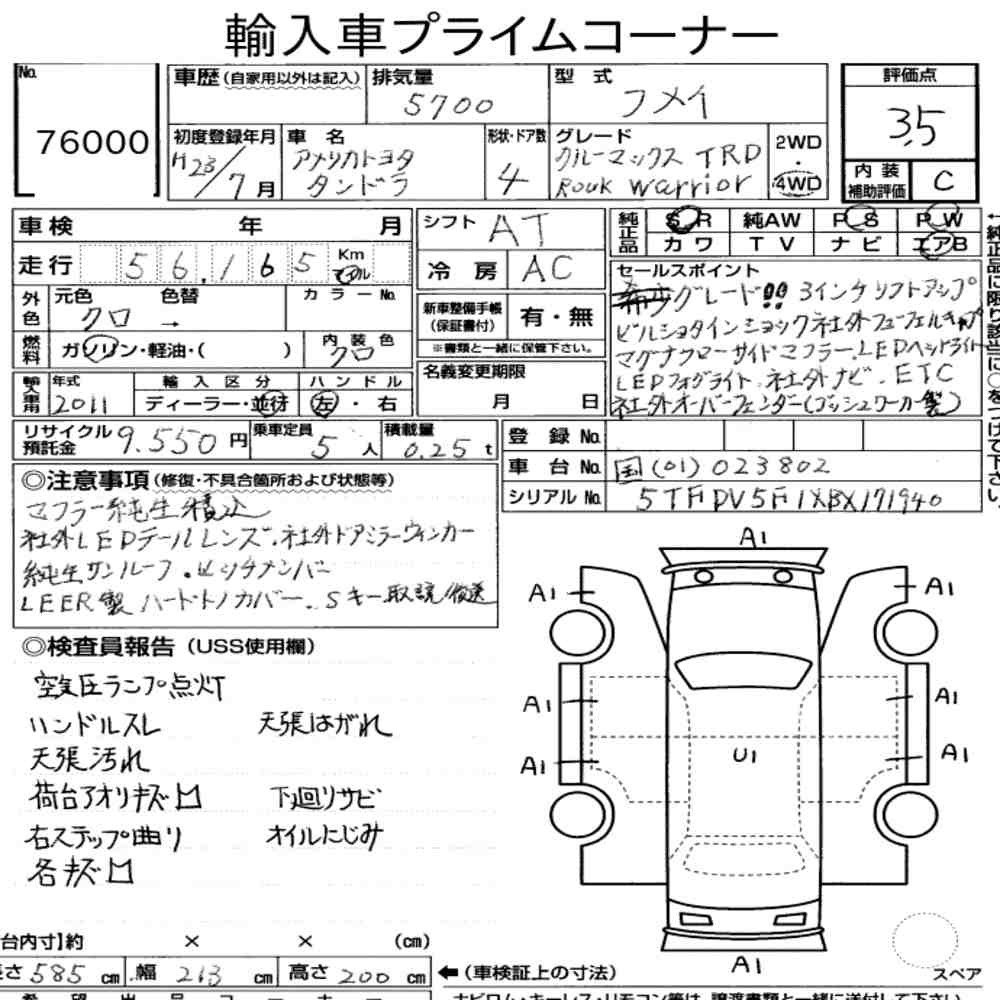 輸入車プライムコーナー
No.
76000
車歴(自家用以外は記入)
排気量
5700
型式
フメイ
評価点
3.5
内装
補助評価
C
初度登録年月
H23/7月
車名
アメリカトヨタ
タンドラ
形状・ドア数
4
グレード
クルーマックス TRD
Rouk warrior
2WD
・
4WD
車検 年 月
走行 56,165 Km
マイル
シフト AT
冷房 AC
純正品
S・R 純AW P・S P・W
カワ TV ナビ エアB
外色
元色 色替
クロ →
カラーNo.
燃料
ガソリン・軽油・( )
内装色
クロ
新車整備手帳
(保証書付)
有・無
※書類と一緒に保管下さい。
セールスポイント
希少グレード!! 3インチリフトアップ
ビルシュタインショック社外フューエルキャップ
マグナフローサイドマフラー.LEDヘッドライト
LEDフォグライト.社外ナビ.ETC
社外オーバーフェンダー(ブッシュワーカー製)
←純正品に限り該当に○をつけて下さい。
輸入車用
年式
2011
輸入区分
ディーラー・並行
ハンドル
左・右
名義変更期限
月 日
リサイクル
預託金
9.550円
乗車定員
5人
積載量
0.25t
登録No.
車台No. 国(01)023802
シリアルNo. 5TFDV5F1XBX171940
◎注意事項(修復・不具合箇所および状態等)
マフラー純生積込
社外LEDテールレンズ.社外ドアミラーウィンカー
純生サンルーフ.ヒッチメンバー
LEER製ハードトノカバー.Sキー取説後送
◎検査員報告(USS使用欄)
空気圧ランプ点灯
ハンドルスレ 天張はがれ
天張汚れ
荷台アオリキズ凹 下廻りサビ
右ステップ曲り オイルにじみ
各キズ凹
A1
A1
A1
A1
A1
U1
A1
A1
A1
スペア
台内寸】約 × × (cm)
長さ585cm 幅213cm 高さ200cm
←(車検証上の寸法)
希望出品コーナー
ナビロム・キーレス・リモコン等は、譲渡書類と一緒に送付して下さい。